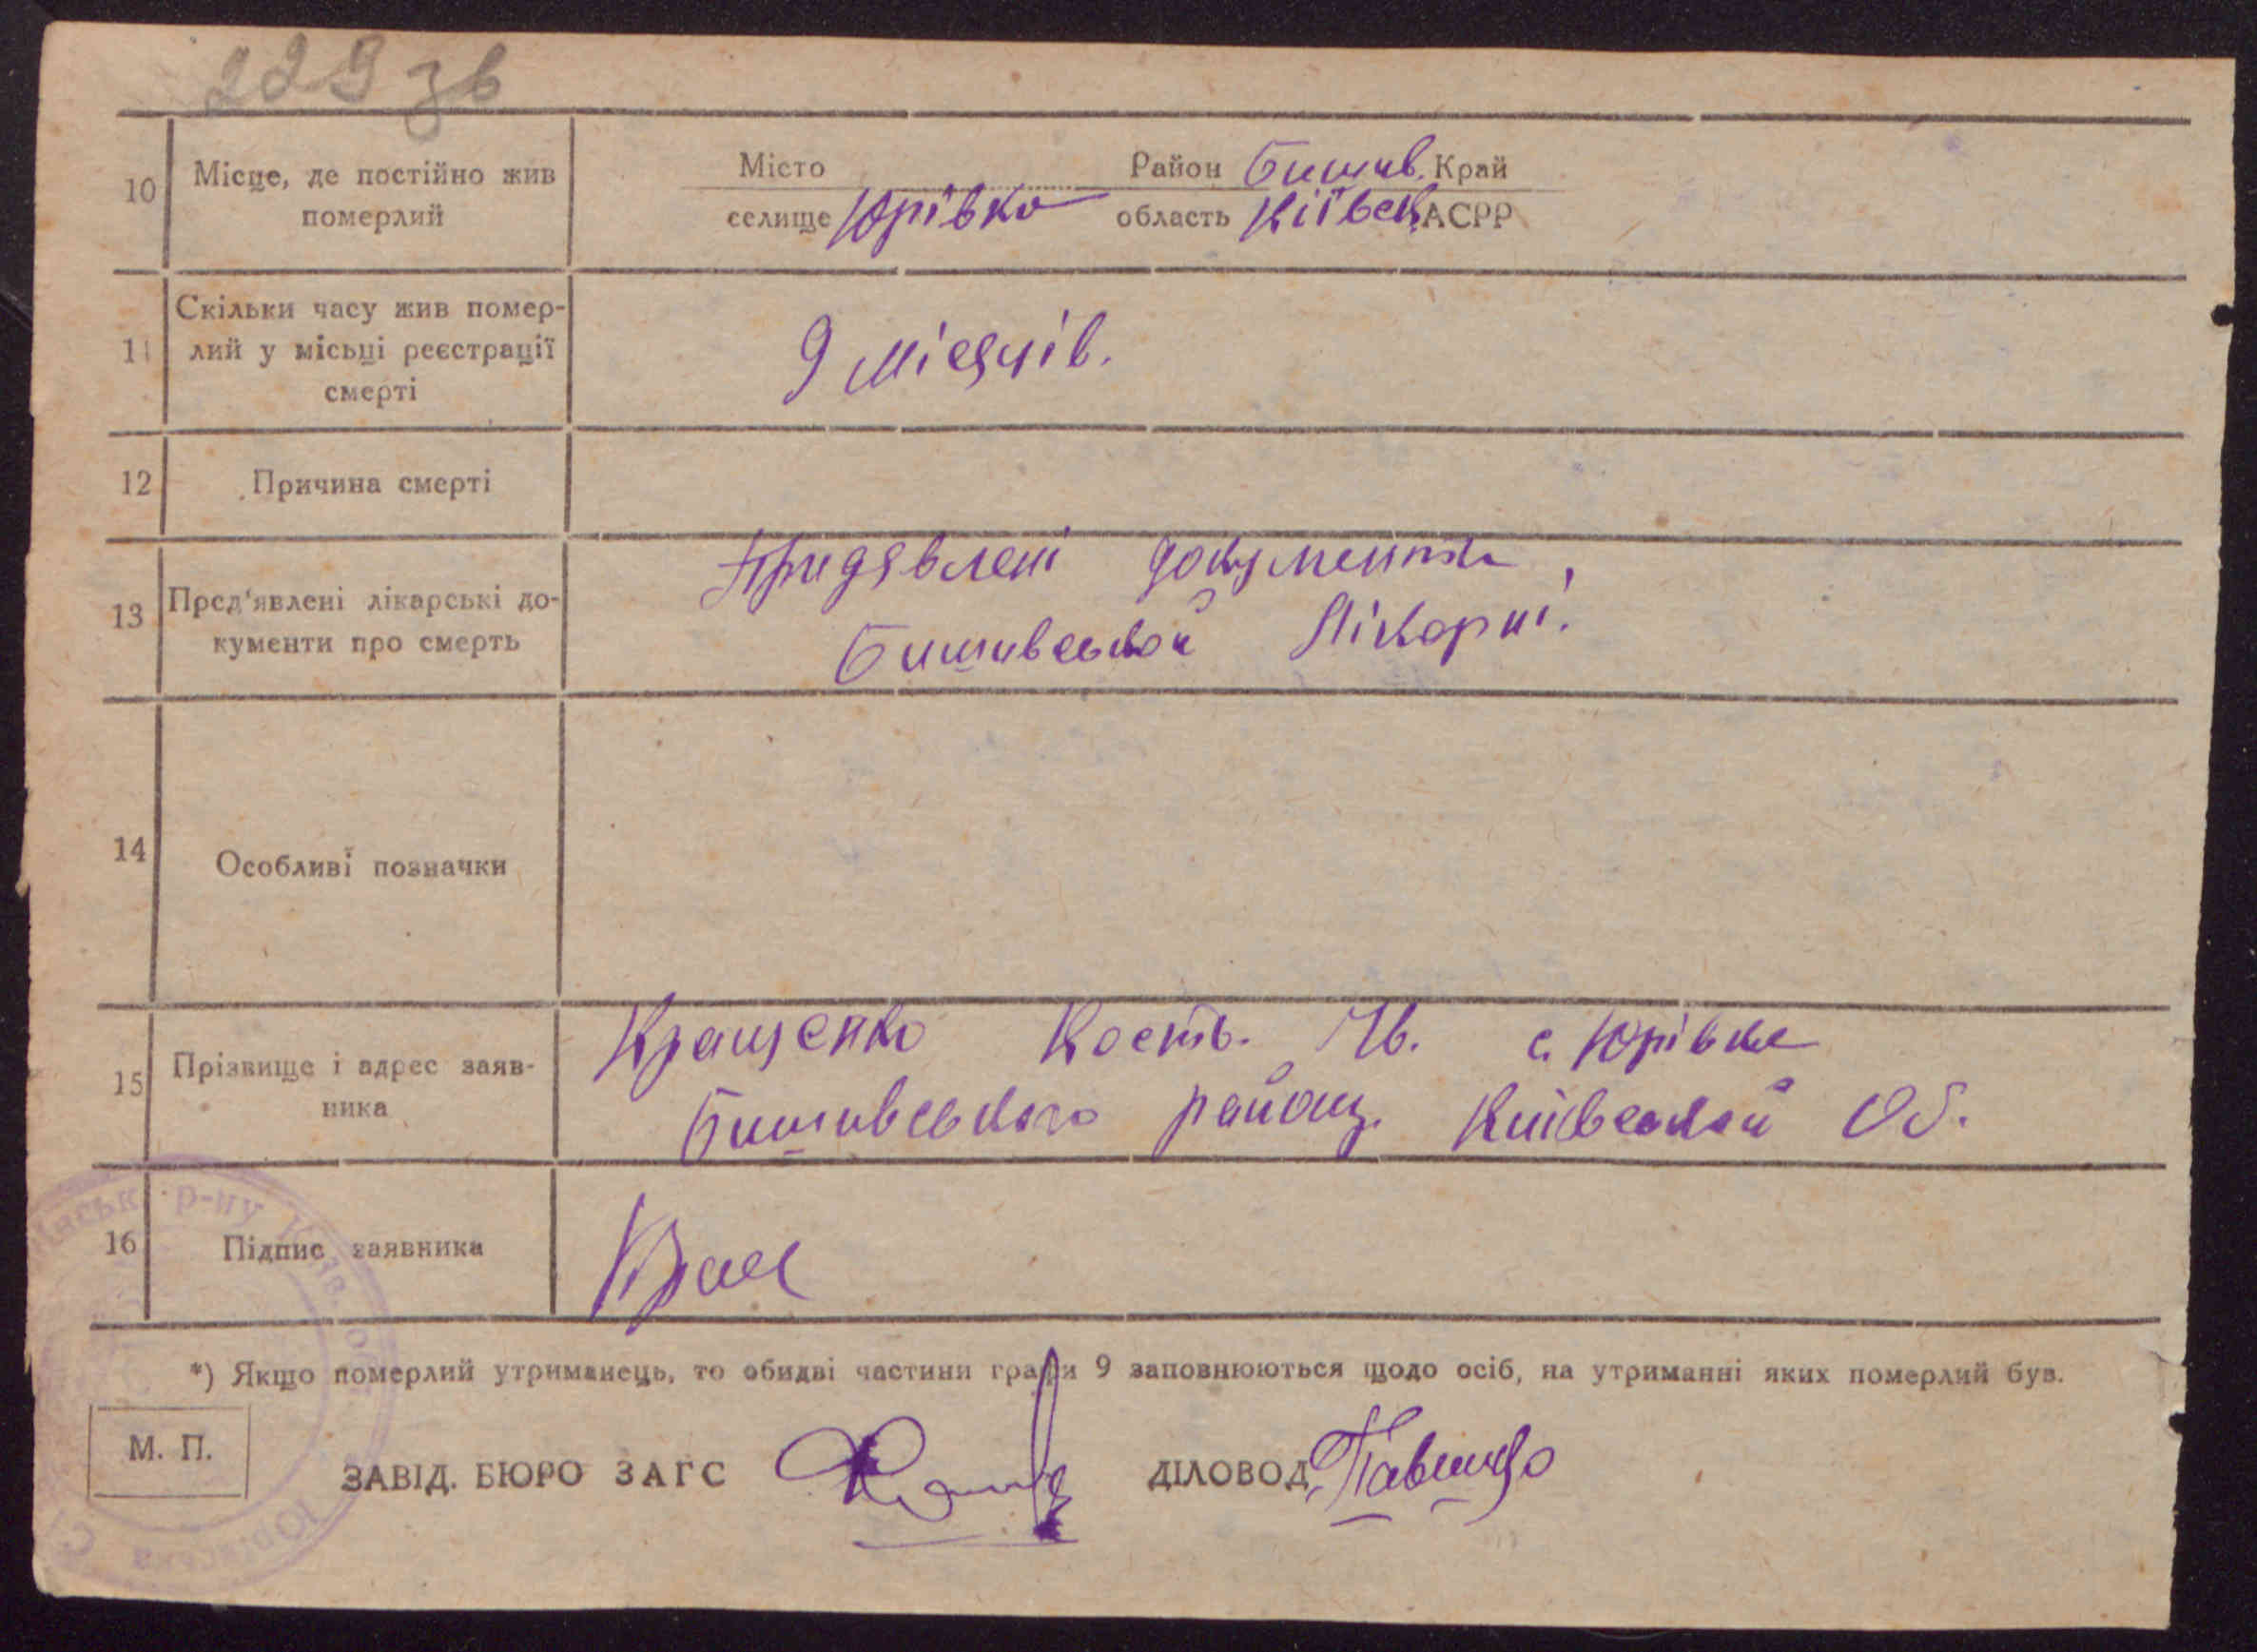 229 зв
10 Місце, де постійно жив
померлий
Місто Район Бишів. Край
селище Юрівка область Київськ АСРР
11 Скільки часу жив помер-
лий у місьці реєстрації
смерті
9 місяців.
12 Причина смерті
13 Пред'явлені лікарські до-
кументи про смерть
Придявлені документи
Бишивської Лікарні.
14 Особливі позначки
15 Прізвище і адрес заяв-
ника
Кращенко Кость. Ів. с. Юрівка
Бишивського району. Київської Об.
16 Підпис заявника
Кращ
*) Якщо померлий утриманець, то обидві частини графи 9 заповнюються щодо осіб, на утриманні яких померлий був.
М. П.
ЗАВІД. БЮРО ЗАГС
ДІЛОВОД
р-ну
Юрівська